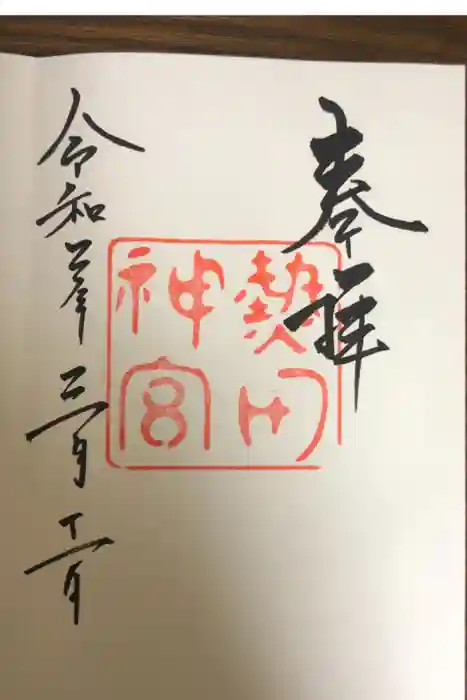 奉拝
熱田
神宮
令和年三月日